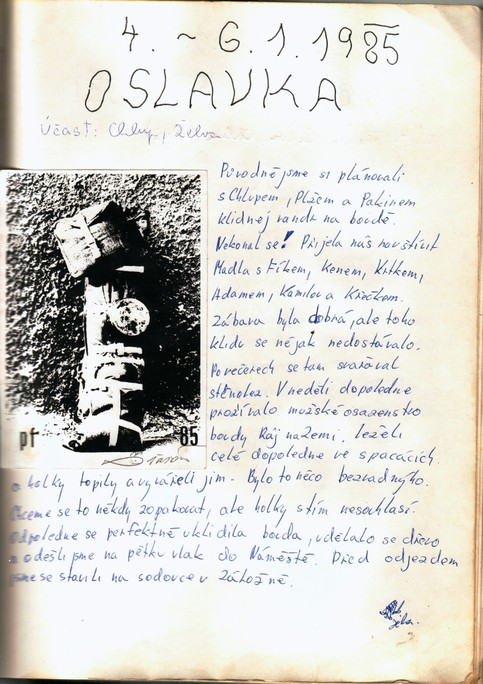 4. ~ 6. 1. 1985
OSLAVKA
Účast: Chlup, Želva
Původně jsme si plánovali
s Chlupem, Plžem a Pakinem
klidnej vandr na boudě.
Nekonal se! Přijela nás navštívit
Madla s Fíkem, Kenem, Krtkem,
Adamem, Kamilou a Křečkem.
Zábava byla dobrá, ale toho
klidu se nějak nedostávalo.
Po večerech se tam svařoval
V neděli dopoledne
prožívalo mužské osazenstvo
boudy Ráj na Zemi. Leželi
celé dopoledne ve spacácích
a holky topily a vyvářeli jim. Bylo to něco bezvadnýho.
Chceme se to někdy zopakovat, ale holky s tím nesouhlasí.
Odpoledne se perfektně uklidila bouda, udělalo se dřevo
a odešli jsme na pětku vlak do Náměště. Před odjezdem
jsme se stavili na sodovce v Zátožně.
pf 85